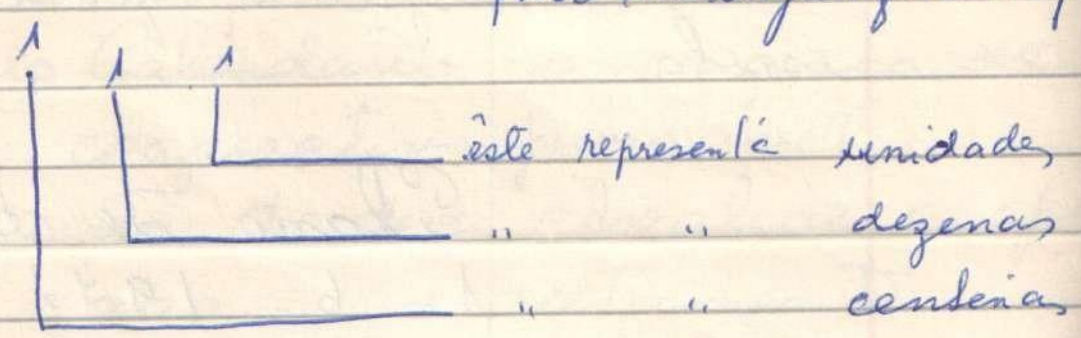 1 1 1
êste representa unidades
" " dezenas
" " centenas